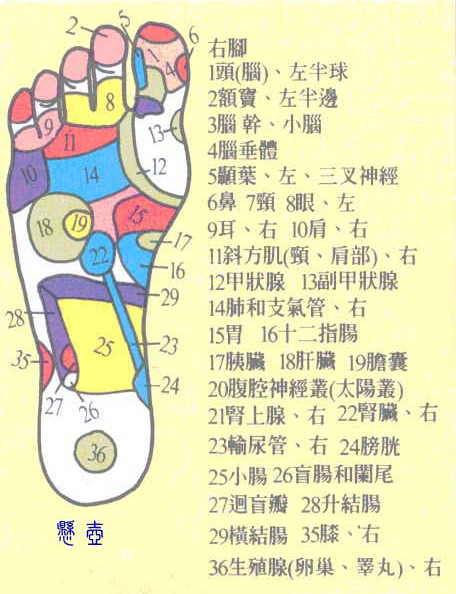 右腳
1頭(腦)、左半球
2額竇、左半邊
3腦幹、小腦
4腦垂體
5顳葉、左、三叉神經
6鼻 7頸 8眼、左
9耳、右 10肩、右
11斜方肌(頸、肩部)、右
12甲狀腺 13副甲狀腺
14肺和支氣管、右
15胃 16十二指腸
17胰臟 18肝臟 19膽囊
20腹腔神經叢(太陽叢)
21腎上腺、右 22腎臟、右
23輸尿管、右 24膀胱
25小腸 26盲腸和闌尾
27迴盲瓣 28升結腸
29橫結腸 35膝、右
36生殖腺(卵巢、睪丸)、右
2
5
6
4
8
9
13
11
10
14
12
15
18
19
17
22
16
29
28
25
23
35
24
27
26
36
懸壺